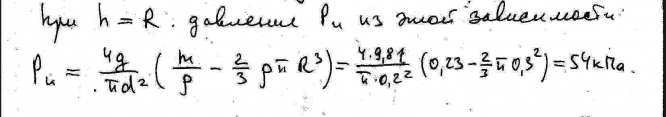 при h = R. давление Pи из этой зависимости:
Pи = 4g/πd² (m/ρ − 2/3 ρπR³) = 4·9,81/π·0,2² (0,23 − 2/3 π0,3²) = 54кПа.